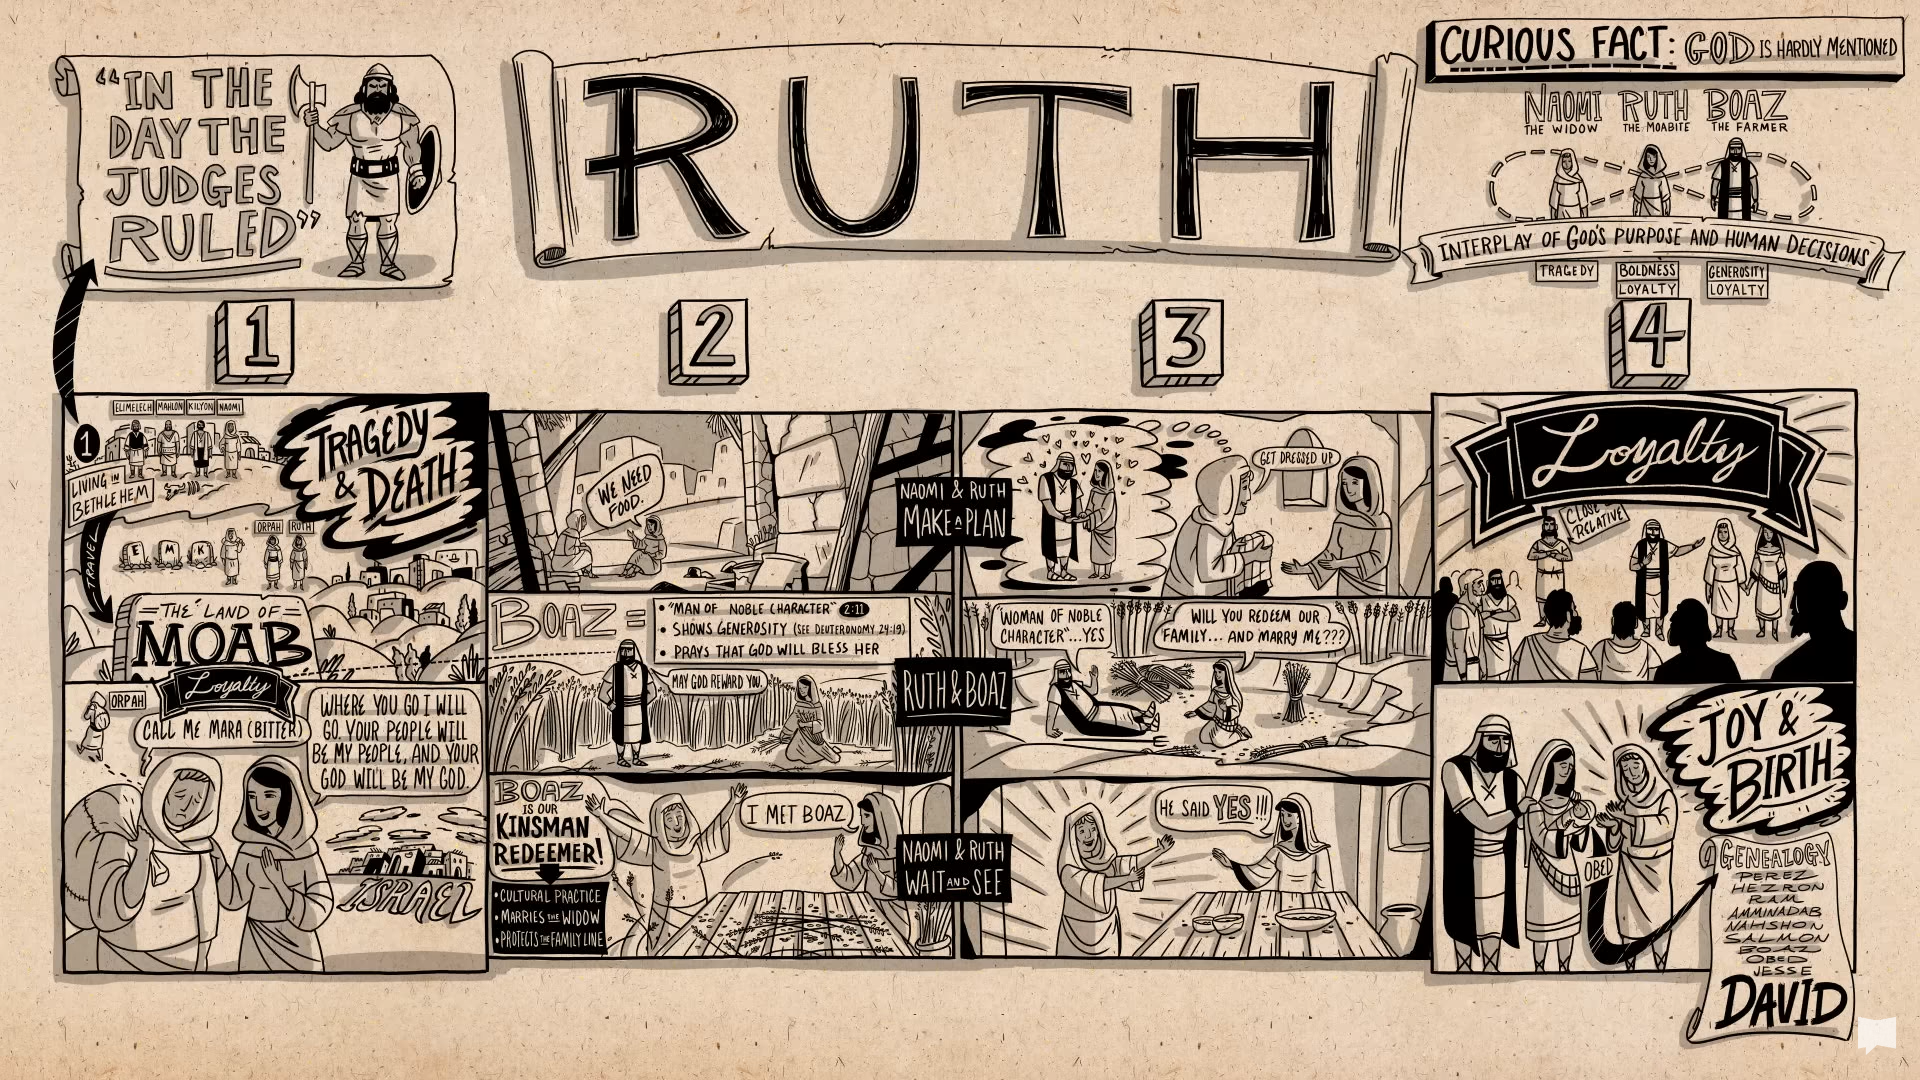 “IN THE
DAY THE
JUDGES
RULED”
RUTH
CURIOUS FACT: GOD IS HARDLY MENTIONED
NAOMI RUTH BOAZ
THE WIDOW THE MOABITE THE FARMER
INTERPLAY OF GOD'S PURPOSE AND HUMAN DECISIONS
TRAGEDY
BOLDNESS
LOYALTY
GENEROSITY
LOYALTY
1
ELIMELECH MAHLON KILYON NAOMI
1
LIVING IN
BETHLEHEM
TRAGEDY
& DEATH
ORPAH RUTH
E M K
TRAVEL
THE LAND OF
MOAB
Loyalty
ORPAH
CALL ME MARA (BITTER)
WHERE YOU GO I WILL
GO. YOUR PEOPLE WILL
BE MY PEOPLE, AND YOUR
GOD WILL BE MY GOD.
ISRAEL
2
WE NEED
FOOD.
BOAZ =
• "MAN OF NOBLE CHARACTER" 2:11
• SHOWS GENEROSITY (SEE DEUTERONOMY 24:19)
• PRAYS THAT GOD WILL BLESS HER
MAY GOD REWARD YOU.
BOAZ
IS OUR
KINSMAN
REDEEMER!
• CULTURAL PRACTICE
• MARRIES THE WIDOW
• PROTECTS THE FAMILY LINE
I MET BOAZ
NAOMI & RUTH
MAKE A PLAN
RUTH & BOAZ
NAOMI & RUTH
WAIT AND SEE
3
GET DRESSED UP
"WOMAN OF NOBLE
CHARACTER"...YES
WILL YOU REDEEM OUR
FAMILY... AND MARRY ME???
HE SAID YES!!!
4
Loyalty
CLOSE
RELATIVE
JOY &
BIRTH
OBED
GENEALOGY
PEREZ
HEZRON
RAM
AMMINADAB
NAHSHON
SALMON
BOAZ
OBED
JESSE
DAVID